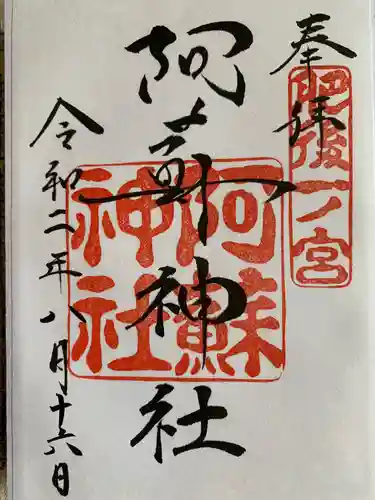 奉拝
肥後一ノ宮
阿蘇神社
阿蘇神社
令和二年八月十六日